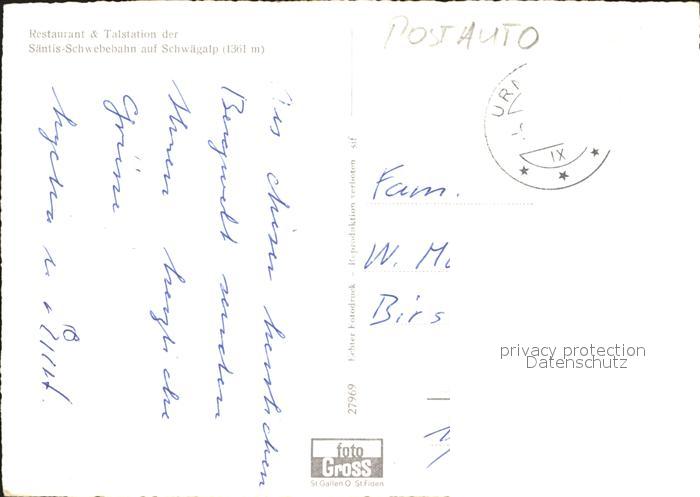 Restaurant & Talstation der
Säntis-Schwebebahn auf Schwägalp (1361 m)
POSTAUTO
URN
IX
Aus dieser herrlichen
Bergwelt senden
Ihnen herzliche
Grüsse
Fam.
W. M
Birs
Echter Fotodruck - Reproduktion verboten
27969
foto
Gross
St. Gallen O St. Fiden
privacy protection
Datenschutz